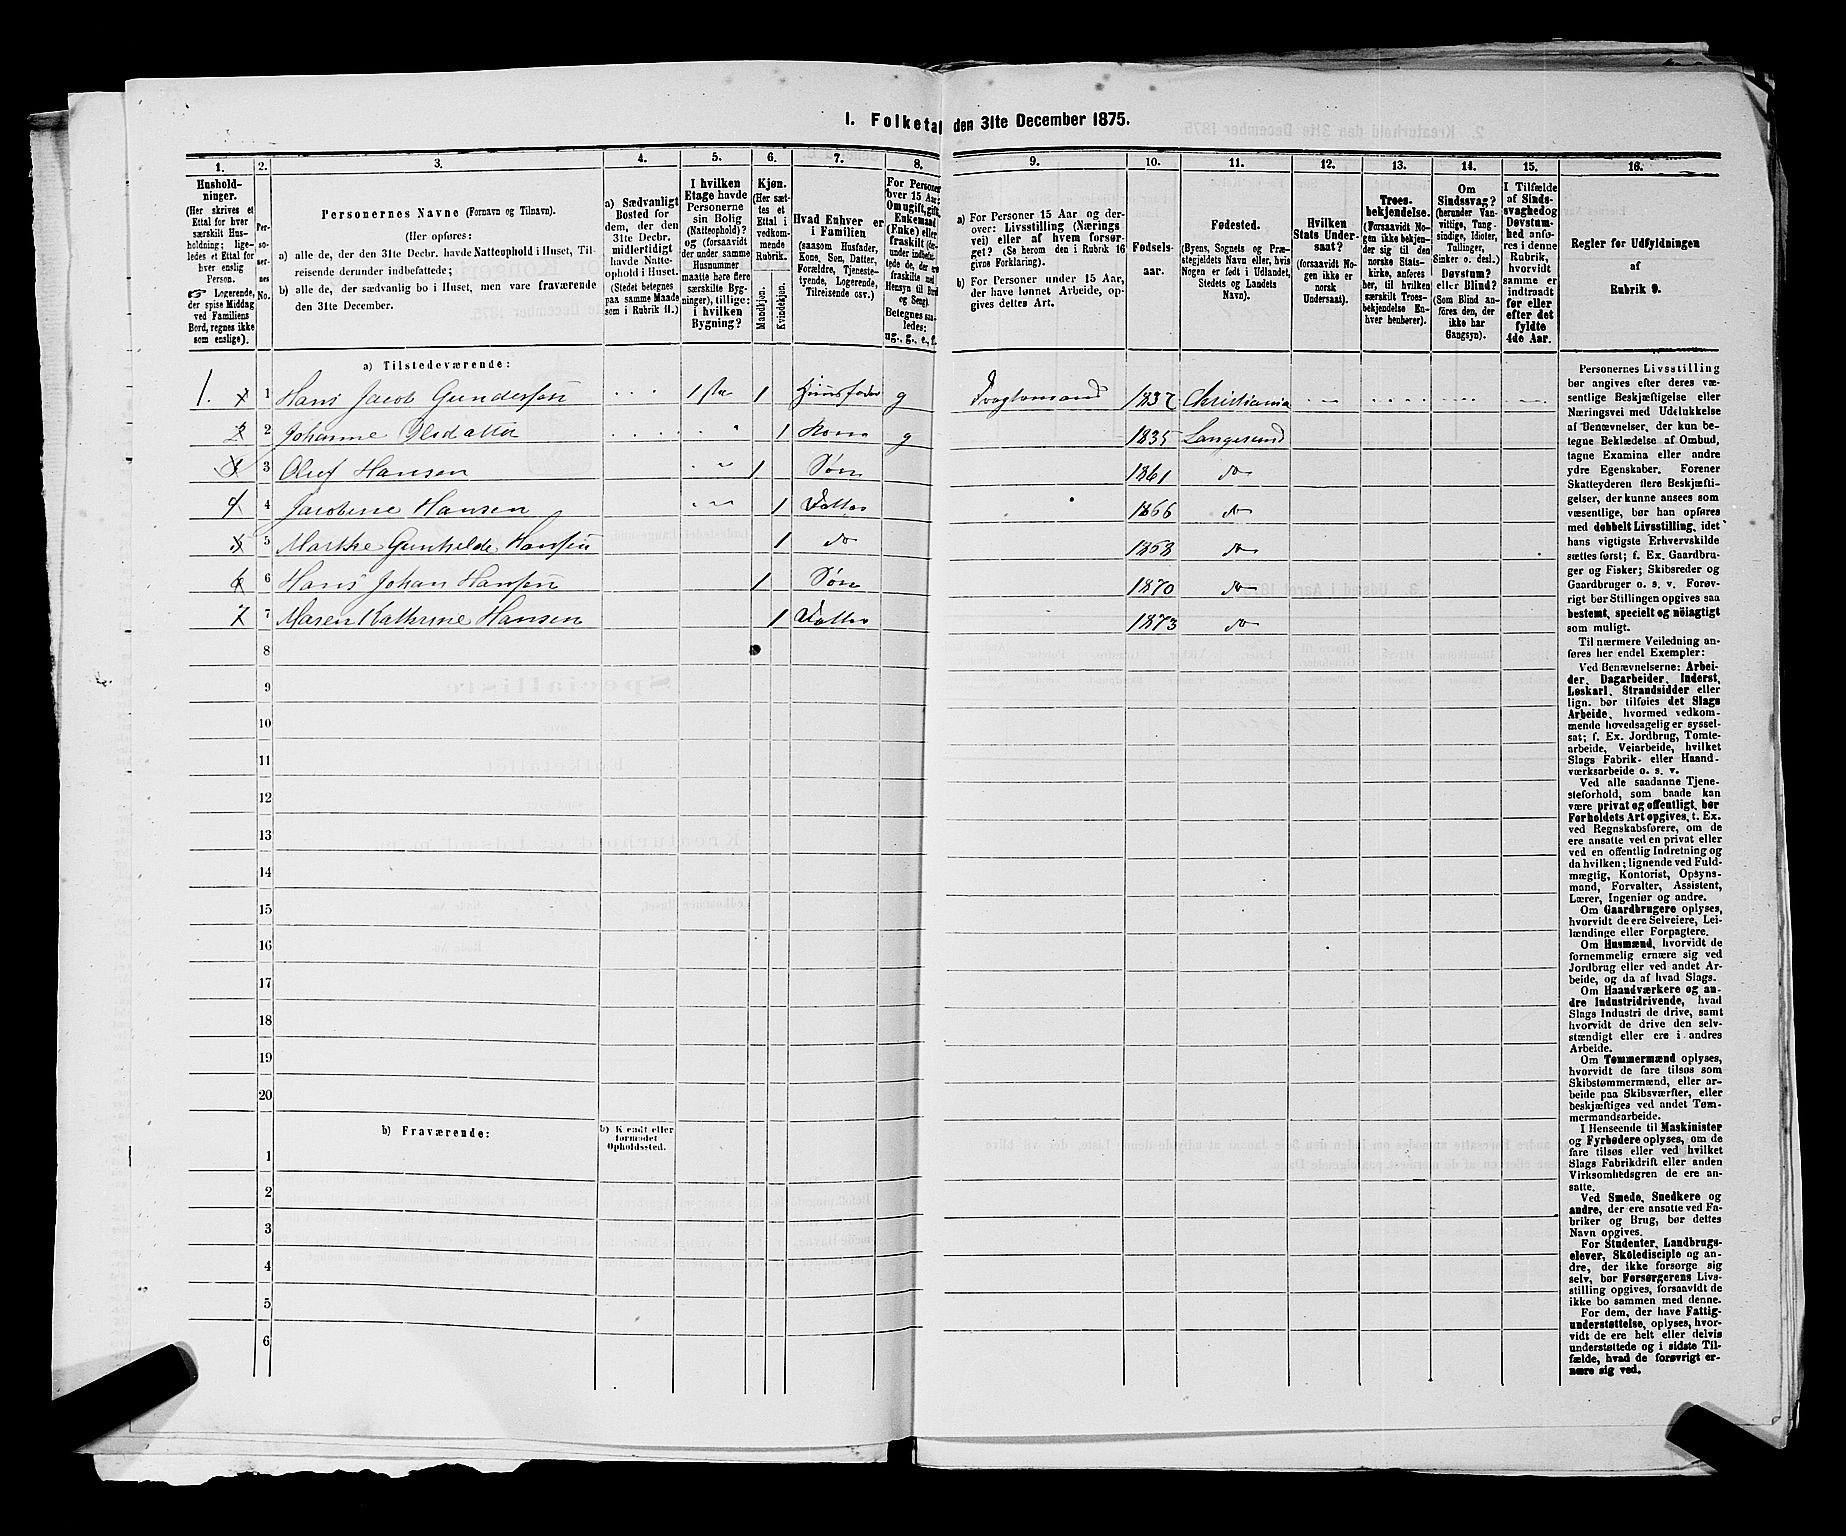 1. Folketal den 31te December 1875.
1. 2. 3. 4. 5. 6. 7. 8. 9. 10. 11. 12. 13. 14. 15. 16.
Hushold-
ninger.
(Her skrives et
Ettal for hver
særskilt Hus-
holdning; lige-
ledes et Ettal for
hver enslig
Person.
Logerende,
der spise Middag
ved Familiens
Bord, regnes ikke
som enslige).
Per-
so-
ner-
nes
No.
Personernes Navne (Fornavn og Tilnavn).
(Her opføres:
a) alle de, der den 31te Decbr. havde Natteophold i Huset, Til-
reisende derunder indbefattede;
b) alle de, der sædvanlig bo i Huset, men vare fraværende
den 31te December.
a) Sædvanligt
Bosted for
dem, der den
31te Decbr.
midlertidigt
havde Natte-
ophold i Huset.
(Stedet betegnes
paa samme Maade
som i Rubrik 11.)
I hvilken
Etage havde
Personerne
sin Bolig
(Natteophold)?
og (forsaavidt
der under samme
Husnummer
maatte høre flere
særskilte Byg-
ninger), tillige:
i hvilken
Bygning?
Kjøn.
(Her sæt-
tes et
Ettal i
vedkom-
mende
Rubrik.
Mandkjøn.
Kvindekjøn.
Hvad Enhver er
i Familien
(saasom Husfader,
Kone, Søn, Datter,
Forældre, Tjeneste-
tyende, Logerende,
Tilreisende osv.)
For Personer
over 15 Aar:
Om ugift, gift,
Enkemand
(Enke) eller
fraskilt
Betegnes saa-
ledes:
ug., g., e., f.
a) For Personer 15 Aar og der-
over: Livsstilling (Nærings
vei) eller af hvem forsør-
get? (Se herom den i Rubrik 16
givne Forklaring).
b) For Personer under 15 Aar,
der have lønnet Arbeide, op-
gives dettes Art.
Fødsels-
aar.
Fødested.
(Byens, Sognets og Præ-
stegjeldets Navn eller, hvis
Nogen er født i Udlandet,
Stedets og Landets
Navn).
Hvilken
Stats Under-
saat?
(forsaavidt No-
gen ikke er
norsk
Undersaat).
Troes-
bekjendelse.
(Forsaavidt No-
gen ikke bekjen-
der sig til den
norske Stats-
kirke, anføres
her, til hvilken
særskilt Troes-
bekjendelse En-
hver henhører).
Om
Sindssvag?
(herunder Van-
vittige, Tung-
sindige, Idioter,
Tullinger,
Sinker o. desl.)
Døvstum?
eller Blind?
(Som Blind an-
føres den, der
ikke har
Gangsyn).
I Tilfælde
af Sinds-
svaghed og
Døvstum-
hed anfø-
res i denne
Rubrik,
hvorvidt
samme er
indtraadt
før eller
efter det
fyldte
4de Aar.
Regler for Udfyldningen
af
Rubrik 9.
a) Tilstedeværende:
1. 1 Hans Jacob Gundersen 1ste 1 Huusfader g 1837 Christiania
2 2 Johanne Olsdatter 1 Kone g 1835 Langesund
3 3 Oluf Hansen 1 Søn 1861 do
4 4 Jacobine Hansen 1 Datter 1866 do
5 5 Marthe Gunhilde Hansen 1 do 1868 do
6 6 Hans Johan Hansen 1 Søn 1870 do
7 7 Maren Kathrine Hansen 1 Datter 1873 do
8
9
10
11
12
13
14
15
16
17
18
19
20
b) Fraværende: b) Kjendt eller
formodet
Opholdssted.
1
2
3
4
5
6
Personernes Livsstilling
bør angives efter deres væ-
sentlige Beskjæftigelse eller
Næringsvei med Udelukkelse
af Benævnelser, der kun be-
tegne Beklædelse af Ombud,
tagne Examina eller andre
ydre Egenskaber. Forener
Skatteyderen flere Beskjæfti-
gelser, der kunne ansees som
væsentlige, bør han opføres
med dobbelt Livsstilling, idet
hans vigtigste Erhvervskilde
sættes først; f. Ex. Gaardbru-
ger og Fisker; Skibsreder og
Gaardbruger o. s. v. Forøv-
rigt bør Stillingen opgives saa
bestemt, specielt og nöiagtigt
som muligt.
Til nærmere Veiledning an-
føres her endel Exempler:
Ved Benævnelserne: Arbei-
der, Dagarbeider, Inderst,
Løskarl, Strandsidder eller
lign. bør tilføies det Slags
Arbeide, hvormed vedkom-
mende hovedsagelig er syssel-
sat; f. Ex. Jordbrug, Tomte-
arbeide, Veiarbeide, hvilket
Slags Fabrik- eller Haand-
værksarbeide o. s. v.
Ved alle saadanne Tjene-
steforhold, som baade kan
være privat og offentligt, bør
Forholdets Art opgives, t. Ex.
ved Regnskabsførere, om de
ere ansatte ved en privat eller
ved en offentlig Indretning og
da hvilken; lignende ved Fuld-
mægtig, Kontorist, Opsyns-
mand, Forvalter, Assistent,
Lærer, Ingeniør og andre.
Om Gaardbrugere oplyses,
hvorvidt de ere Selveiere, Lei-
lændinge eller Forpagtere.
Om Husmænd, hvorvidt de
fornemmelig ernære sig ved
Jordbrug eller ved andet Ar-
beide, og da af hvad Slags.
Om Haandværkere og an-
dre Industridrivende, hvad
Slags Industri de drive, samt
hvorvidt de drive den selv-
stændigt eller ere i andres
Arbeide.
Om Tømmermænd oplyses,
hvorvidt de fare tilsøs som
Skibstømmermænd, eller ar-
beide paa Skibsværfter, eller
beskjæftiges ved andet Tøm-
mermandsarbeide.
I Henseende til Maskinister
og Fyrbødere oplyses, om de
fare tilsøs eller ved hvilket
Slags Fabrikdrift eller anden
Virksomhedsgren de ere an-
satte.
Ved Smede, Snedkere og
andre, der ere ansatte ved Fa-
briker og Brug, bør dettes
Navn opgives.
For Studenter, Landbrugs-
elever, Skoledisciple og an-
dre, der ikke forsørge sig
selv, bør Forsørgerens Livs-
stilling opgives, forsaavidt de
ikke bo sammen med denne.
For dem, der have Fattig-
understøttelse, oplyses, hvor-
vidt de ere helt eller delvis
understøttede og i sidste Til-
fælde, hvad de forøvrigt er-
nære sig ved.